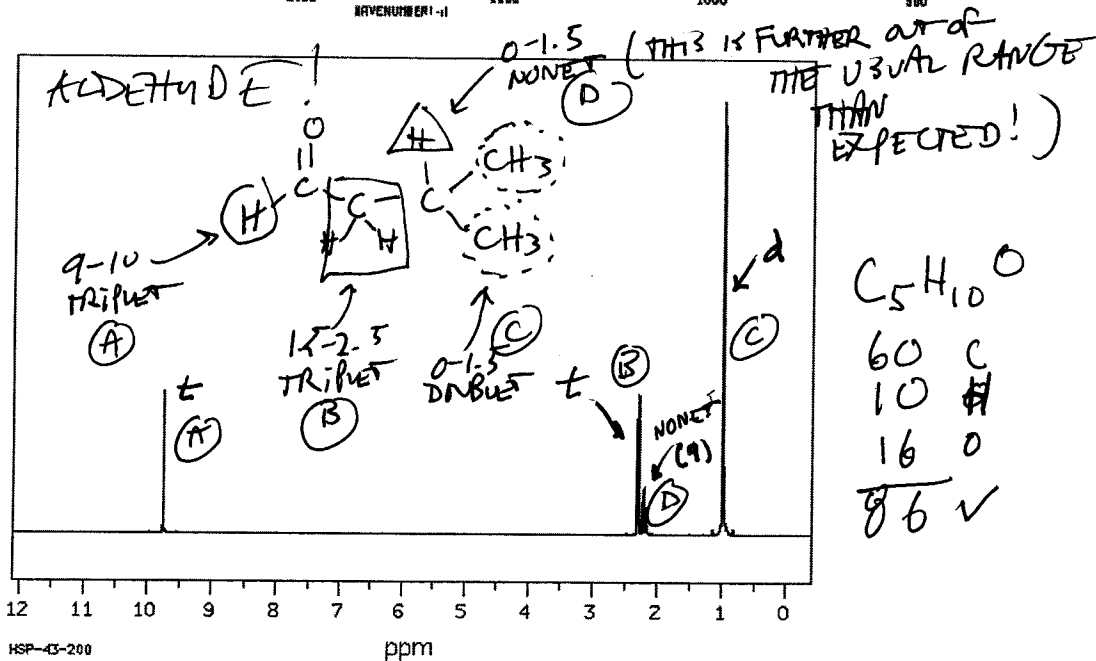 WAVENUMBER(-1)
1000
ALDEHYDE!
0-1.5
NONET
(THIS IS FURTHER OUT OF
THE USUAL RANGE
THAN
EXPECTED!)
D
O
||
H
C
C
H H
H
C
CH3
CH3
9-10
TRIPLET
A
1.5-2.5
TRIPLET
B
0-1.5
DOUBLET
C
t
A
t
B
NONET
(9)
D
d
C
C5H10O
60 C
10 H
16 O
86 ✓
12 11 10 9 8 7 6 5 4 3 2 1 0
HSP-43-200
ppm